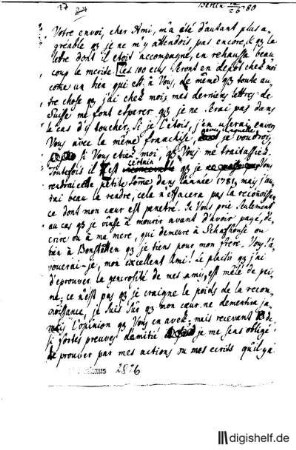 27 27 Berlin 12/26 80
Votre envoi, cher Ami, m'a été d'autant plus a-
gréable que je ne m'y attendois pas encore, & que la
lettre dont il étoit accompagné, en rehausse beau-
coup le mérite. Les 100 écus seront en dépôt chez moi
comme un bien qui est à Vous, de même que toute au-
tre chose que j'ai chez moi mes dernieres lettres de
Suisse me font espérer que je ne serai pas dans
le cas d'y toucher, si je l'étois, j'en userai envers
Vous avec la même franchise, avec laquelle je voudrois,
si Vous etiez moi, que Vous me traitassiez
Toutefois il est certain que je Vous
rendrai cette petite somme dans l'année 1781, mais j'au-
rai beau le rendre, cela n'effacera pas la reconnoiss-
ce dont mon cœur est penetré. Je Vous prie seulement
au cas que je vinsse à mourir avant d'avoir payé, d'é-
crire ou à ma mere, qui demeure à Schafhouse ou
bien à Bonstetten que je tiens pour mon frere. Vous l'a-
vouerai-je, mon excellent Ami! Le plaisir que j'ai
d'éprouver la generosité de mes amis, est mêlé de pei-
ne; ce n'est pas que je craigne le poids de la recon-
noissance, je suis sûr que mon cœur ne dementira ja-
mais l'opinion que Vous en avez mais recevant de
si fortes preuves d'amitié je me sens obligé
de prouver par mes actions ou mes ecrits qu'il y a
2826
digishelf.de